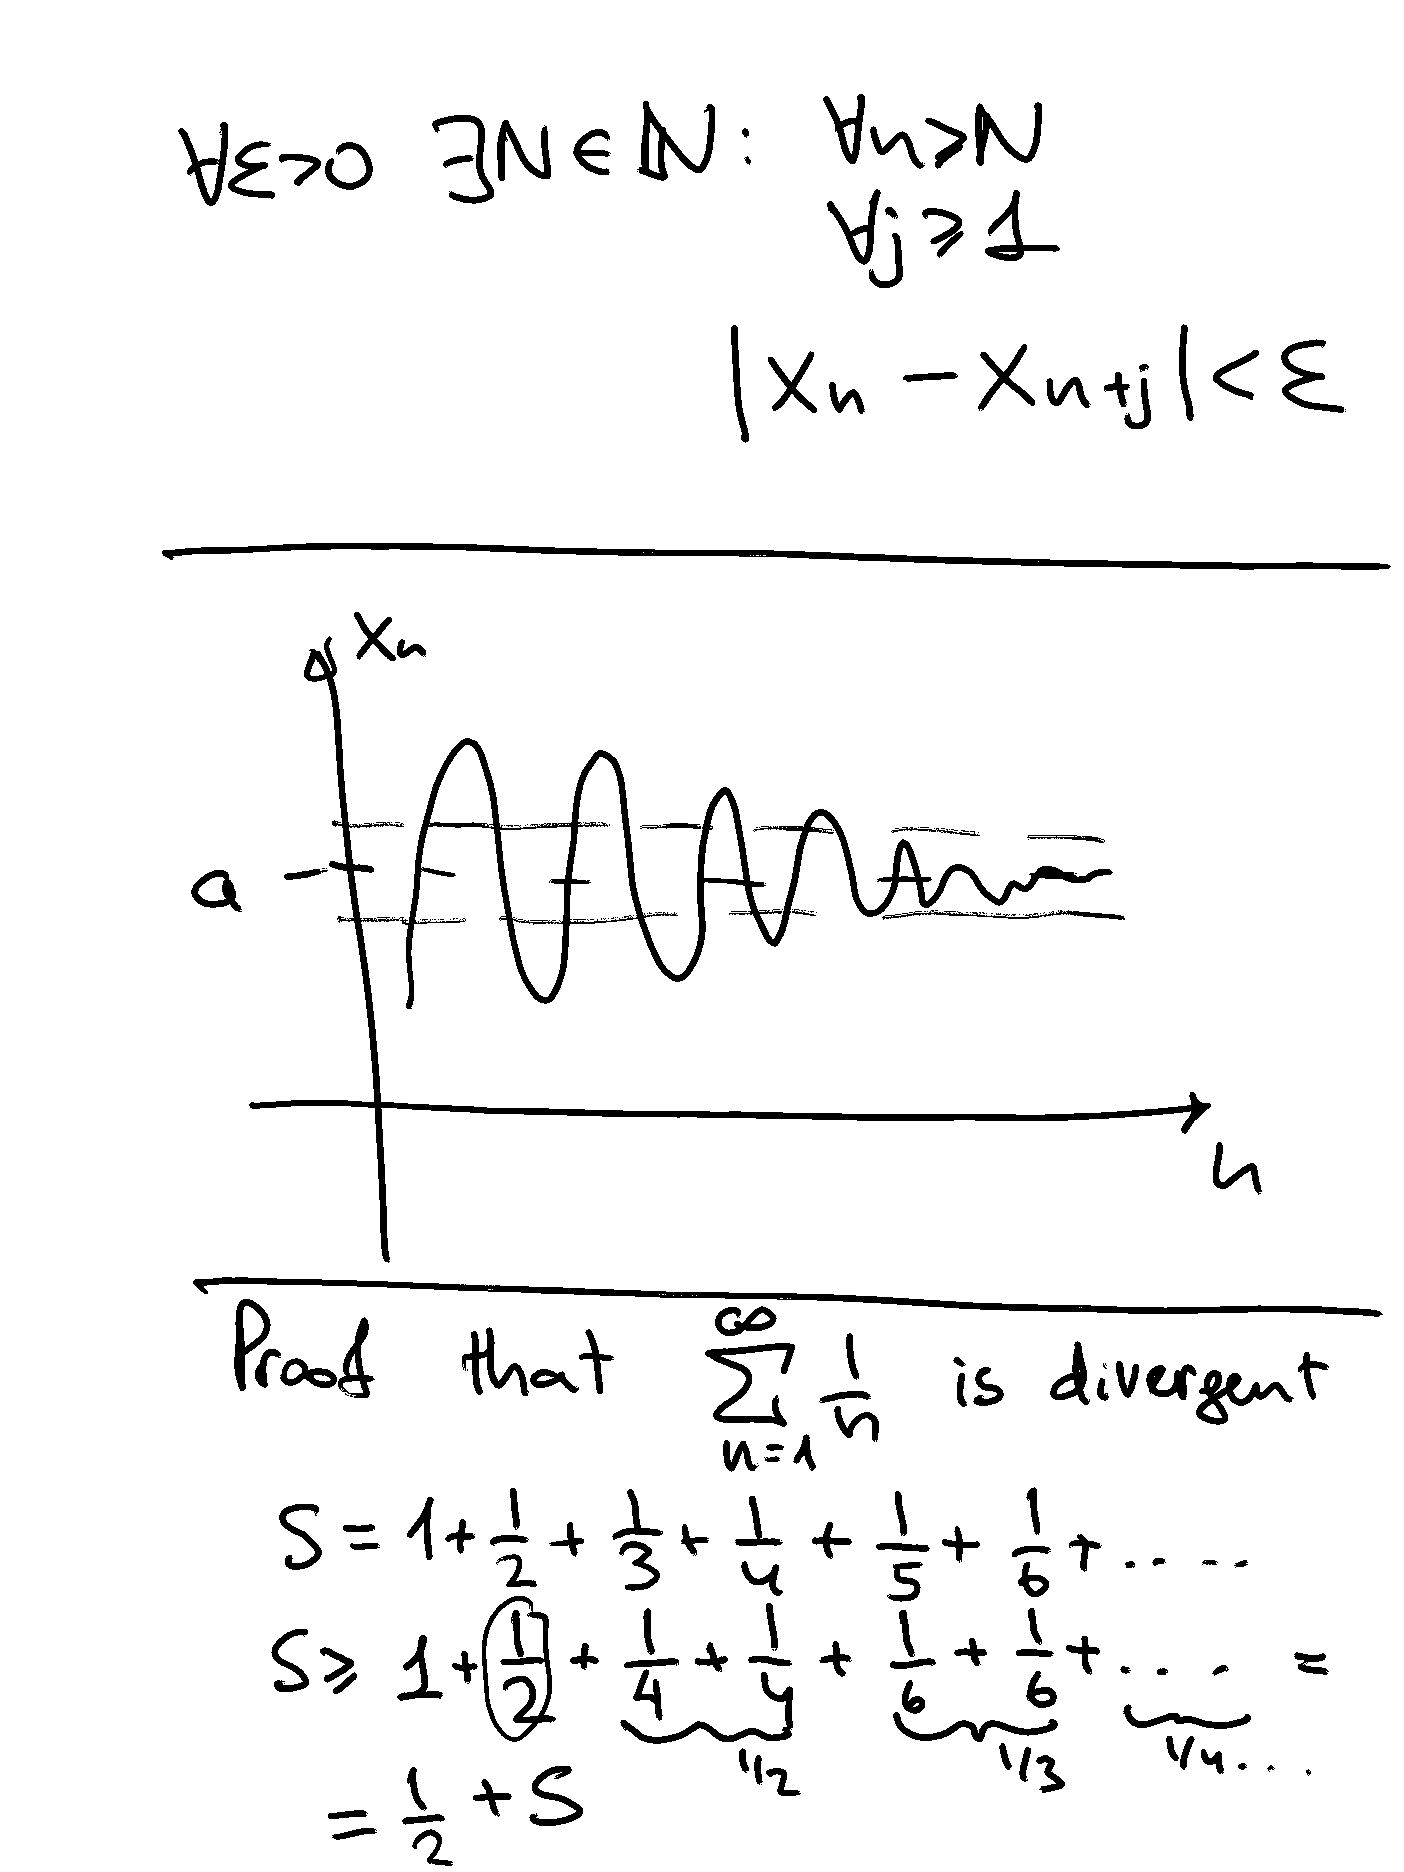 ∀ε>0 ∃N∈ℕ: ∀n>N
∀j⩾1
|xₙ − xₙ₊ⱼ| < ε
xₙ
a
n
Proof that ∑_{n=1}^{∞} 1/n is divergent
S = 1 + 1/2 + 1/3 + 1/4 + 1/5 + 1/6 + ....
S ⩾ 1 + 1/2 + 1/4 + 1/4 + 1/6 + 1/6 + ... =
1/2 1/3 1/4 ...
= 1/2 + S